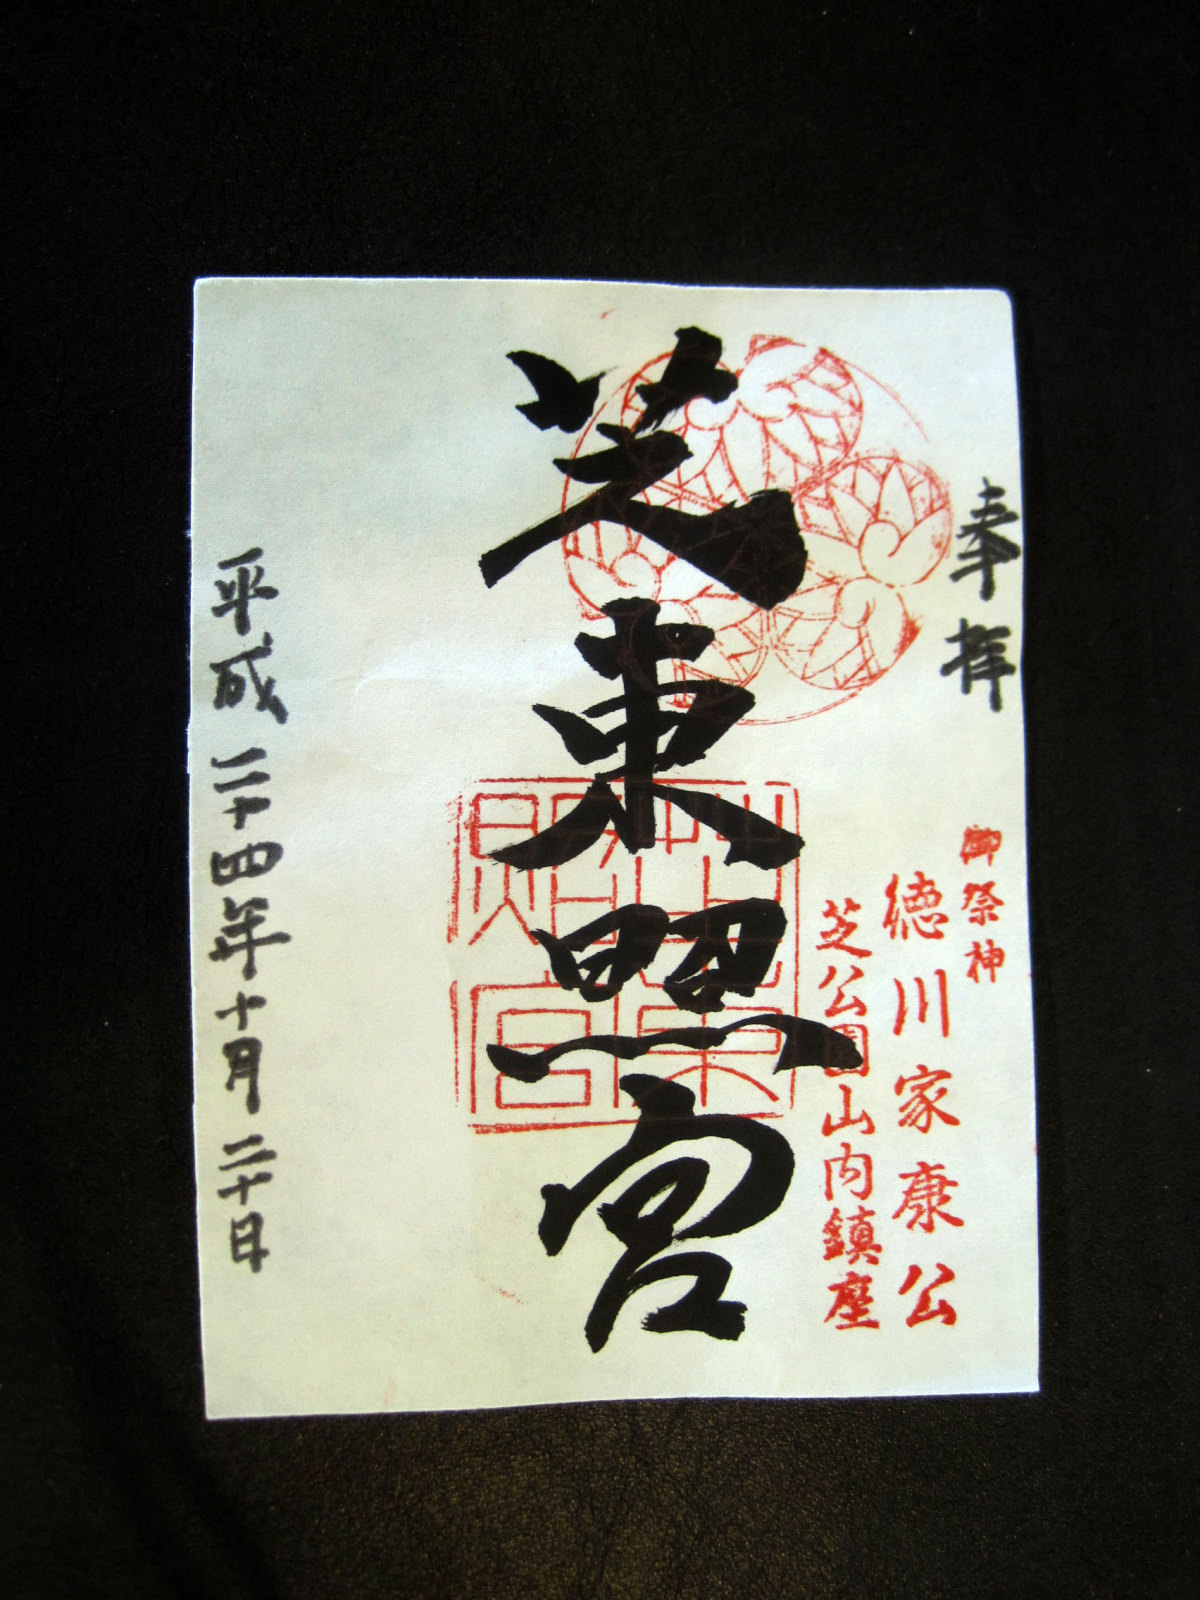 奉拝
御祭神
徳川家康公
芝公園山内鎮座
芝東照宮
芝東照宮
平成二十四年十月二十日